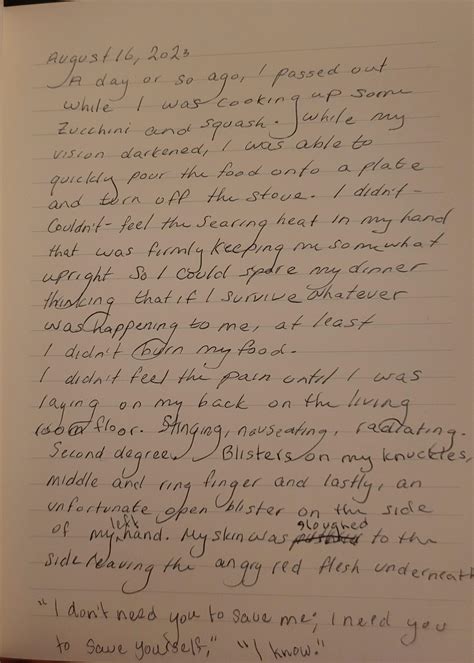 August 16, 2023
A day or so ago, I passed out
while I was cooking up some
zucchini and squash. While my
vision darkened, I was able to
quickly pour the food onto a plate
and turn off the stove. I didn't -
couldn't - feel the searing heat in my hand
that was firmly keeping me somewhat
upright so I could spare my dinner
thinking that if I survive whatever
was happening to me, at least
I didn't burn my food.
I didn't feel the pain until I was
laying on my back on the living
room floor. Stinging, nauseating, radiating.
Second degree. Blisters on my knuckles,
middle and ring finger and lastly, an
unfortunate open blister on the side
of my left hand. My skin was sloughed to the
side leaving the angry red flesh underneath
"I don't need you to save me; I need you
to save yourself," "I know."